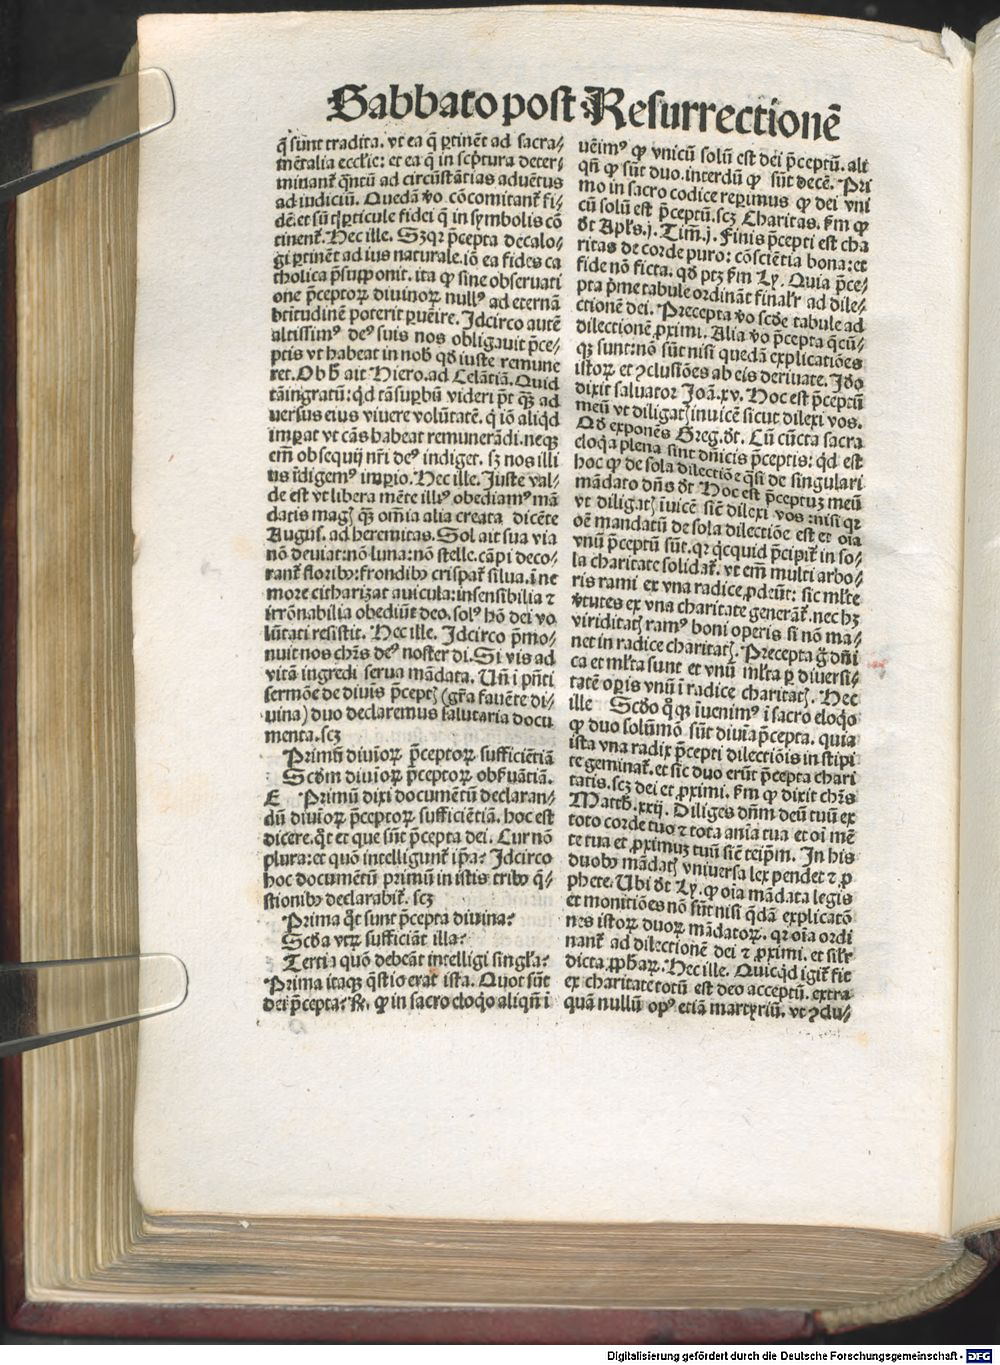 Sabbato post Resurrectionē
q̄ sunt tradita. vt ea q̄ ꝑtinēt ad sacra⸗
mētalia eccl'ie: et ea q̄ in scͥptura deter⸗
minant᷑ q̄ntū ad circūstātias aduētus
ad iudiciū. Quedā v̄o cōcomitant᷑ fi⸗
dē et sūt ꝑticule fidei q̄ in symbolis cō
tinent᷑. Hec ille. Sꝫ qꝛ p̄cepta decalo⸗
gi ꝑtinēt ad ius naturale. iō ea fides ca
tholica p̄supponit. ita ꝙ sine obseruati
one p̄ceptoꝝ diuinoꝝ nullꝰ ad eternā
btitudinē poterit ꝑuēire. Idcirco autē
altissimꝰ deꝰ suis nos obligauit p̄ce⸗
ptis vt habeat in nob̄ qd̄ iuste remune
ret. Ob h̄ ait Hiero. ad Celātiā. Quid
tā ingratū: qͥd tā supbū videri pōt qꝫ ad
uersus eius viuere volūtatē. q̄ iō aliqͥd
imꝑat vt cās habeat remunerādi. neqꝫ
em̄ obsequij nr̄i deꝰ indiget. sꝫ nos illi
us īdigemꝰ imꝑio. Hec ille. Iuste val⸗
de est vt libera mēte illiꝰ obediamꝰ mā
datis magꝭ qꝫ om̄ia alia creata dicēte
Augus. ad heremitas. Sol ait sua via
nō deuiat: nō luna: nō stelle. cāpi deco⸗
rant᷑ floribꝰ: frondibꝰ crispat᷑ silua. ī ne
more citharizat auicula: insensibilia ⁊
irrōnabilia obediūt deo. solꝰ hō dei vo
lūtati resistit. Hec ille. Idcirco p̄mo⸗
nuit nos chr̄s deꝰ noster di. Si vis ad
vitā ingredi serua mādata. Un̄ ī pn̄ti
sermōe de diuis p̄ceptꝭ (gr̄a fauēte di⸗
uina) duo declaremus salutaria docu
menta. scꝫ
Primū diuioꝝ p̄ceptoꝝ sufficiētiā
Scd̄m diuioꝝ p̄ceptoꝝ obẜuātiā.
E Primū dixi documētū declaran⸗
dū diuioꝝ p̄ceptoꝝ sufficiētiā. hoc est
dicere. qͦt et que sūt p̄cepta dei. Cur nō
plura: et quō intelligunt᷑ ip̄a? Idcirco
hoc documētū primū in istis tribꝰ q̄⸗
stionibꝰ declarabit᷑. scꝫ
Prima qͦt sunt p̄cepta diuina?
Scd̄a vtꝝ sufficiāt illa?
Tertia quō debeāt intelligi singl'a?
Prima itaqꝫ q̄stio erat ista. Quot sūt
dei p̄cepta? ℟. ꝙ in sacro eloqͦo aliqn̄ ī
uēimꝰ ꝙ vnicū solū est dei p̄ceptū. ali
qn̄ ꝙ sūt duo. interdū ꝙ sūt decē. Pri
mo in sacro codice reꝑimus ꝙ dei vni
cū solū est p̄ceptū. scꝫ Charitas. ẜm ꝙ
d̄t Apl's. j. Tim̄. j. Finis p̄cepti est cha
ritas de corde puro: cōsciētia bona: et
fide nō ficta. qd̄ ptꝫ ẜm Ly. Quia p̄ce⸗
pta p̄me tabule ordināt᷑ final'r ad dile⸗
ctionē dei. Precepta v̄o scd̄e tabule ad
dilectionē ꝓximi. Alia v̄o p̄cepta qͥcū⸗
qꝫ sunt: nō sūt nisi quedā explicatiōes
istoꝝ et ꝯclusiōes ab eis deriuate. Iō
dixit saluator Joā. xv. Hoc est p̄ceptū
meū vt diligatꝭ inuicē sicut dilexi vos.
Qd̄ exponēs Greg. d̄t. Cū cūcta sacra
eloqͥa plena sint dn̄icis p̄ceptis: qͥd est
hoc ꝙ de sola dilectiōe qͣsi de singulari
mādato dn̄s d̄t Hoc est p̄ceptuꝫ meū
vt diligatꝭ īuicē sic̄ dilexi vos: nisi qꝛ
oē mandatū de sola dilectiōe est et oīa
vnū p̄ceptū sūt. qꝛ qͥcquid p̄cipit᷑ in so⸗
la charitate solidat᷑. vt em̄ multi arbo⸗
ris rami ex vna radice ꝓdeūt: sic ml'te
v̄tutes ex vna charitate generāt᷑. nec hꝫ
viriditatꝭ ramꝰ boni operis si nō ma⸗
net in radice charitatꝭ. Precepta ḡ dn̄i
ca et ml'ta sunt et vnū ml'ta ꝑ diuersi⸗
tatē oꝑis vnū ī radice charitatꝭ. Hec
ille Scd̄o qn̄qꝫ iuenimꝰ ī sacro eloqͦo
ꝙ duo solūmō sūt diuīa p̄cepta. quia
ista vna radix p̄cepti dilectiōis in stipi
te geminat᷑. et sic duo erūt p̄cepta chari
tatis. scꝫ dei et ꝓximi. ẜm ꝙ dixit chr̄s
Matth. xxij. Diliges dn̄m deū tuū ex
toto corde tuo ⁊ tota anīa tua et oī mē
te tua et ꝓximuꝫ tuū sic̄ teip̄m. In his
duobꝰ mādatꝭ vniuersa lex pendet ⁊ ꝓ
phete. Ubi d̄t Ly. ꝙ oīa mādata legis
et monitiōes nō sūt nisi q̄dā explicatō
nes istoꝝ duoꝝ mādatoꝝ. qꝛ oīa ordi
nant᷑ ad dilectionē dei ⁊ ꝓximi. et sil'r
dicta ꝓph̄aꝝ. Hec ille. Quicqͥd igit᷑ fit
ex charitate totū est deo acceptū. extra
quā nullū opꝰ etiā martyriū. vt ꝯdu⸗
Digitalisierung gefördert durch die Deutsche Forschungsgemeinschaft - DFG